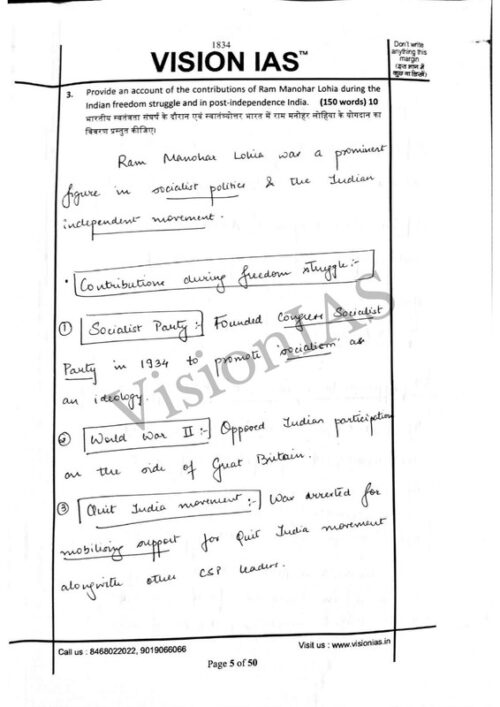 1834
VISION IAS™
Don't write
anything this
margin
(इस भाग में
कुछ ना लिखें)
3. Provide an account of the contributions of Ram Manohar Lohia during the
Indian freedom struggle and in post-independence India. (150 words) 10
भारतीय स्वतंत्रता संघर्ष के दौरान एवं स्वातंत्र्योत्तर भारत में राम मनोहर लोहिया के योगदान का
विवरण प्रस्तुत कीजिए।
Ram Manohar Lohia was a prominent
figure in socialist politics & the Indian
independent movement.
• Contributions during freedom struggle:-
① Socialist Party:- Founded Congress Socialist
Party in 1934 to promote 'socialism' as
an ideology.
② World War II:- Opposed Indian participation
on the side of Great Britain.
③ Quit India movement:- Was arrested for
mobilising support for Quit India movement
alongwith other CSP leaders.
VisionIAS
Call us : 8468022022, 9019066066
Visit us : www.visionias.in
Page 5 of 50